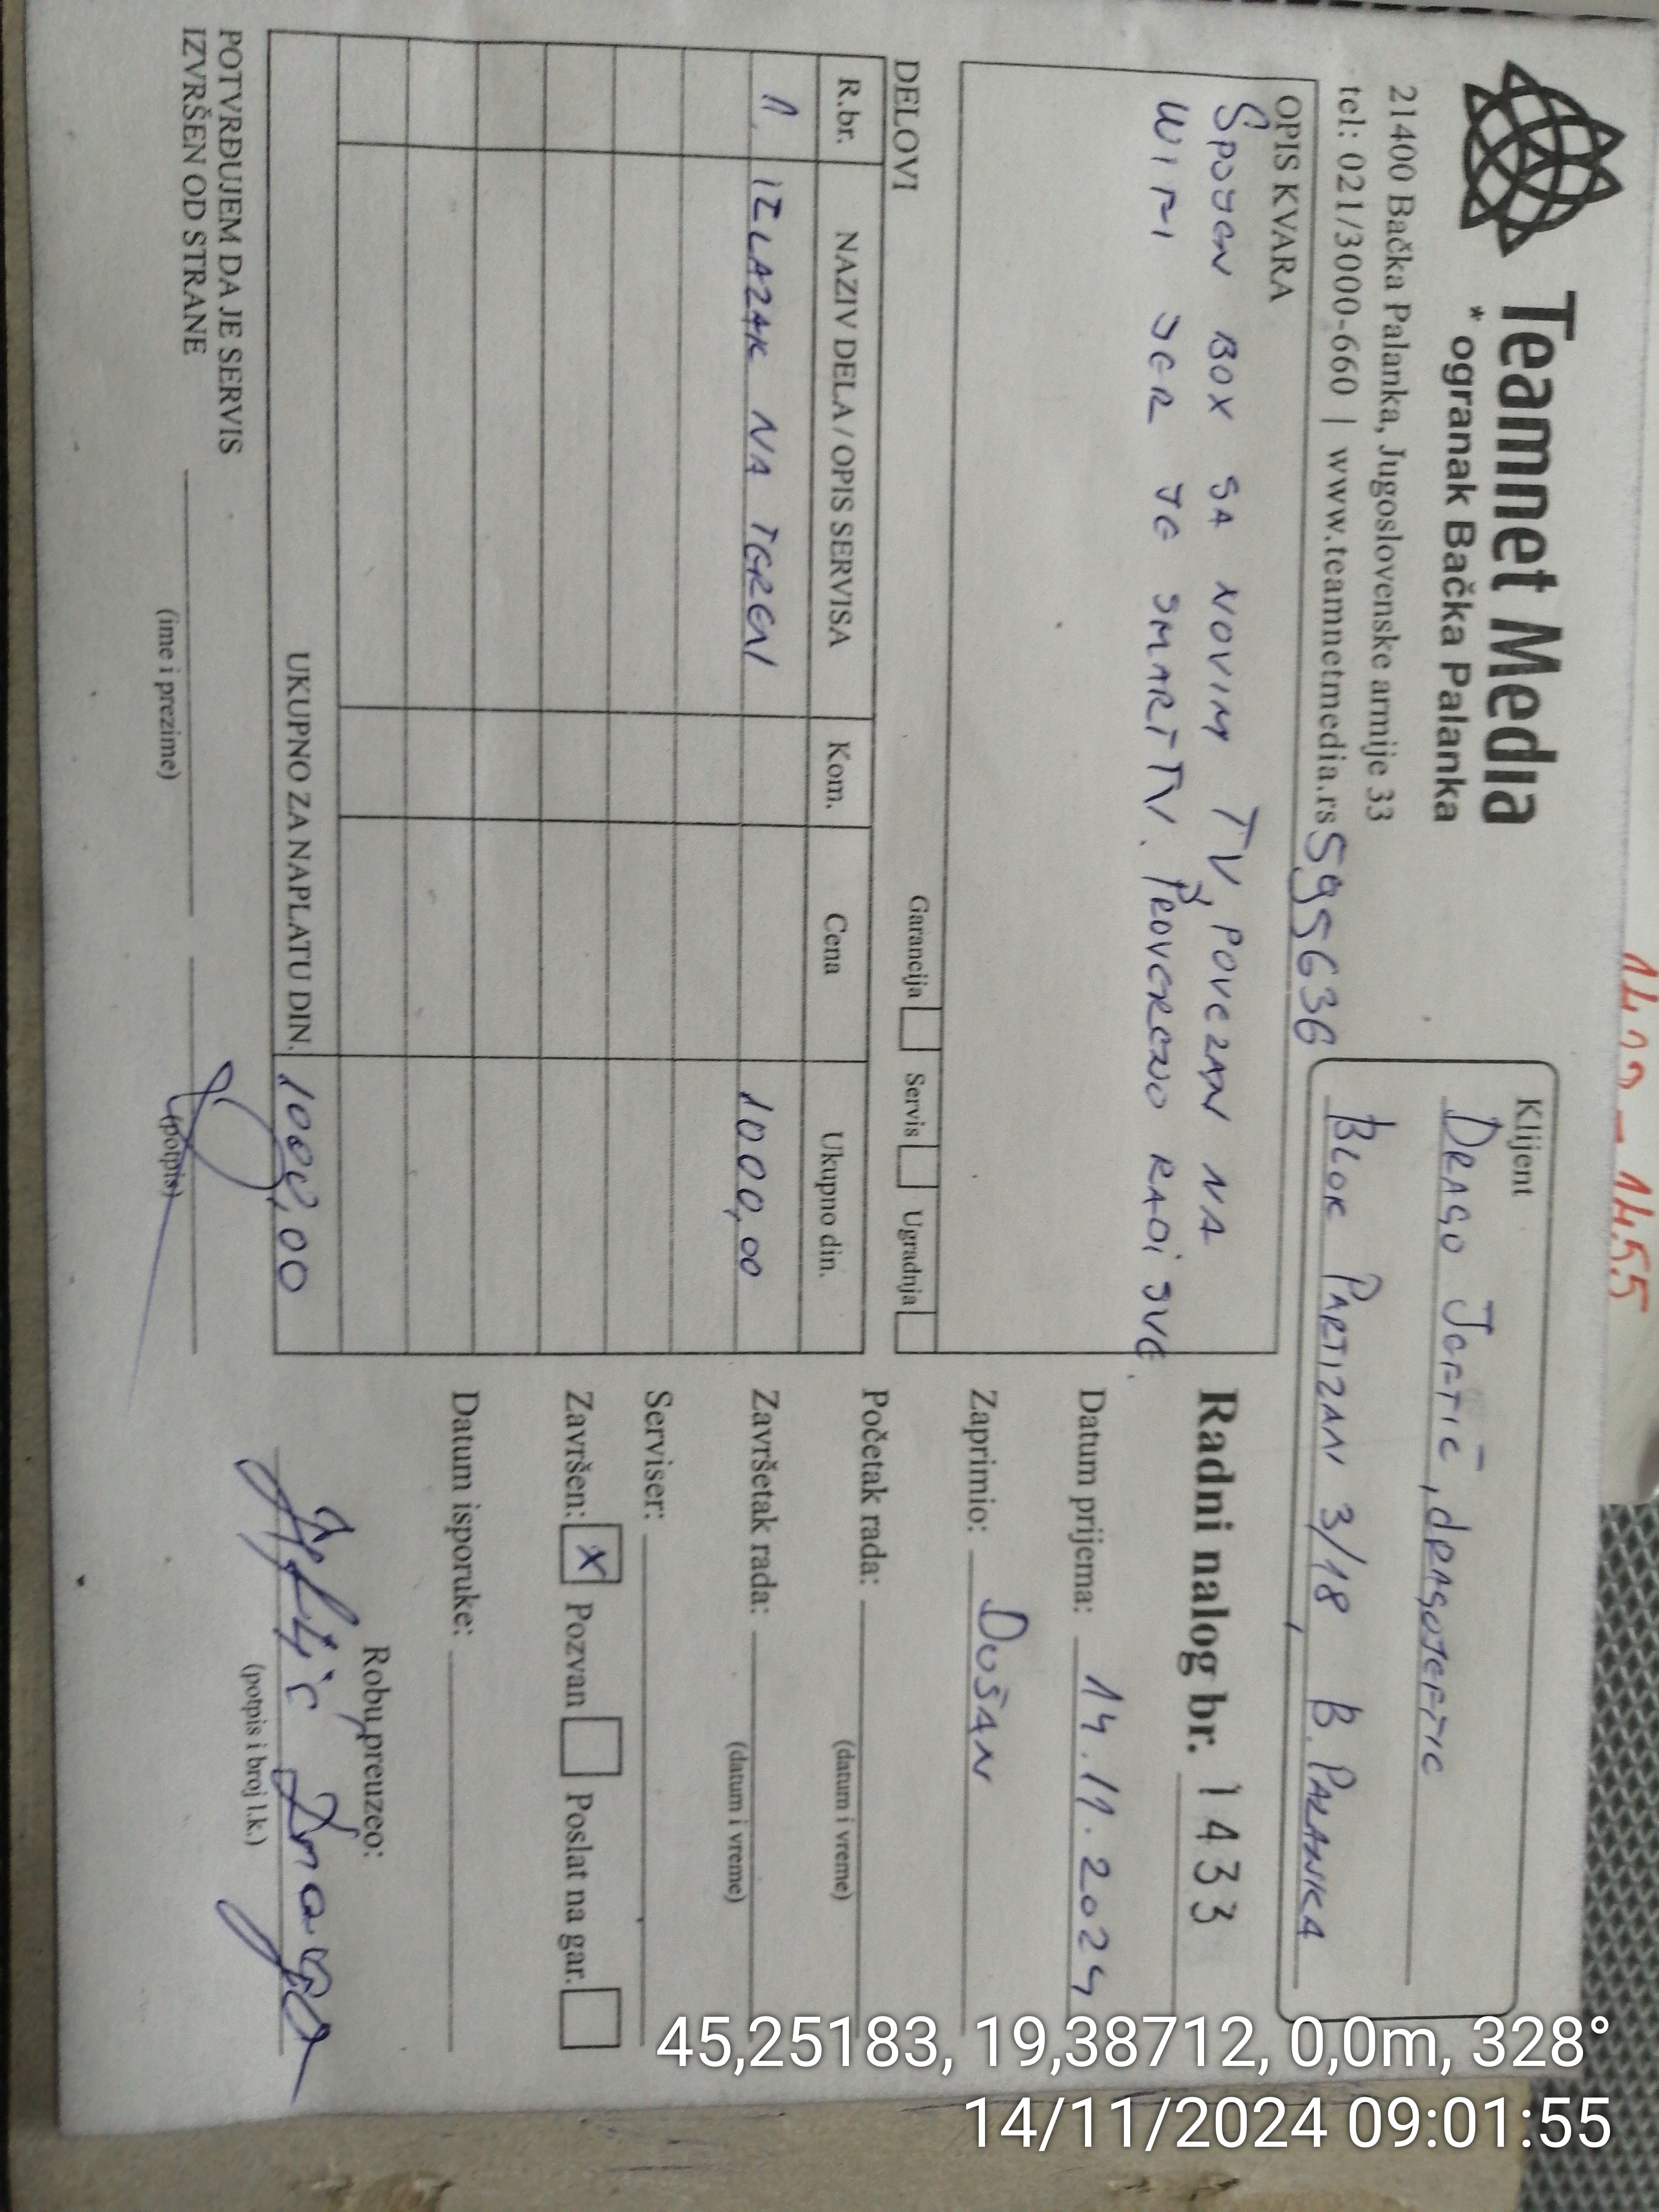 Teamnet Media
* ogranak Bačka Palanka
21400 Bačka Palanka, Jugoslovenske armije 33
tel: 021/3000-660 | www.teamnetmedia.rs
595636
Klijent
DRAGO JEFTIĆ, dRAGOJEFTIC
BLOK PARTIZANI 3/18 B. PALANKA
OPIS KVARA
SPOJEN BOX SA NOVIM TV, POVEZAN NA
WIFI JER JE SMART TV. PROVERENO RADI SVE.
Radni nalog br. 1433
Datum prijema: 14.11.2024
Zaprimio: DUŠAN
Početak rada:
(datum i vreme)
Završetak rada:
(datum i vreme)
Serviser:
Završen: X Pozvan Poslat na gar.
Datum isporuke:
Robu preuzeo:
Jeftić Drago
(potpis i broj l.k.)
DELOVI
Garancija Servis Ugradnja
R.br. NAZIV DELA / OPIS SERVISA Kom. Cena Ukupno din.
1. IZLAZAK NA TEREN 1000,00
UKUPNO ZA NAPLATU DIN. 1000,00
POTVRĐUJEM DA JE SERVIS
IZVRŠEN OD STRANE
(ime i prezime) (potpis)
45,25183, 19,38712, 0,0m, 328°
14/11/2024 09:01:55